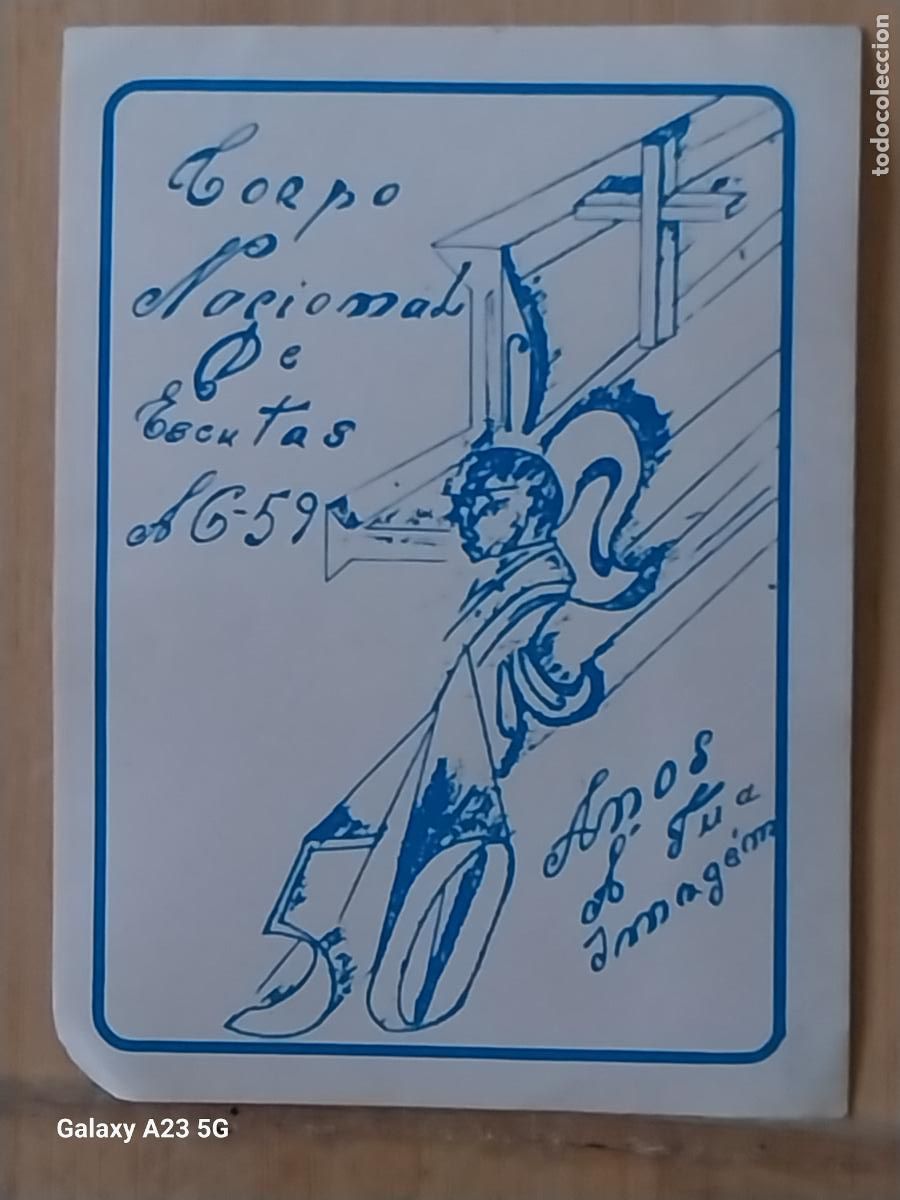 Corpo
Nacional
De
Escutas
AG-59
50
Anos
À Tua
Imagem
todocoleccion
Galaxy A23 5G